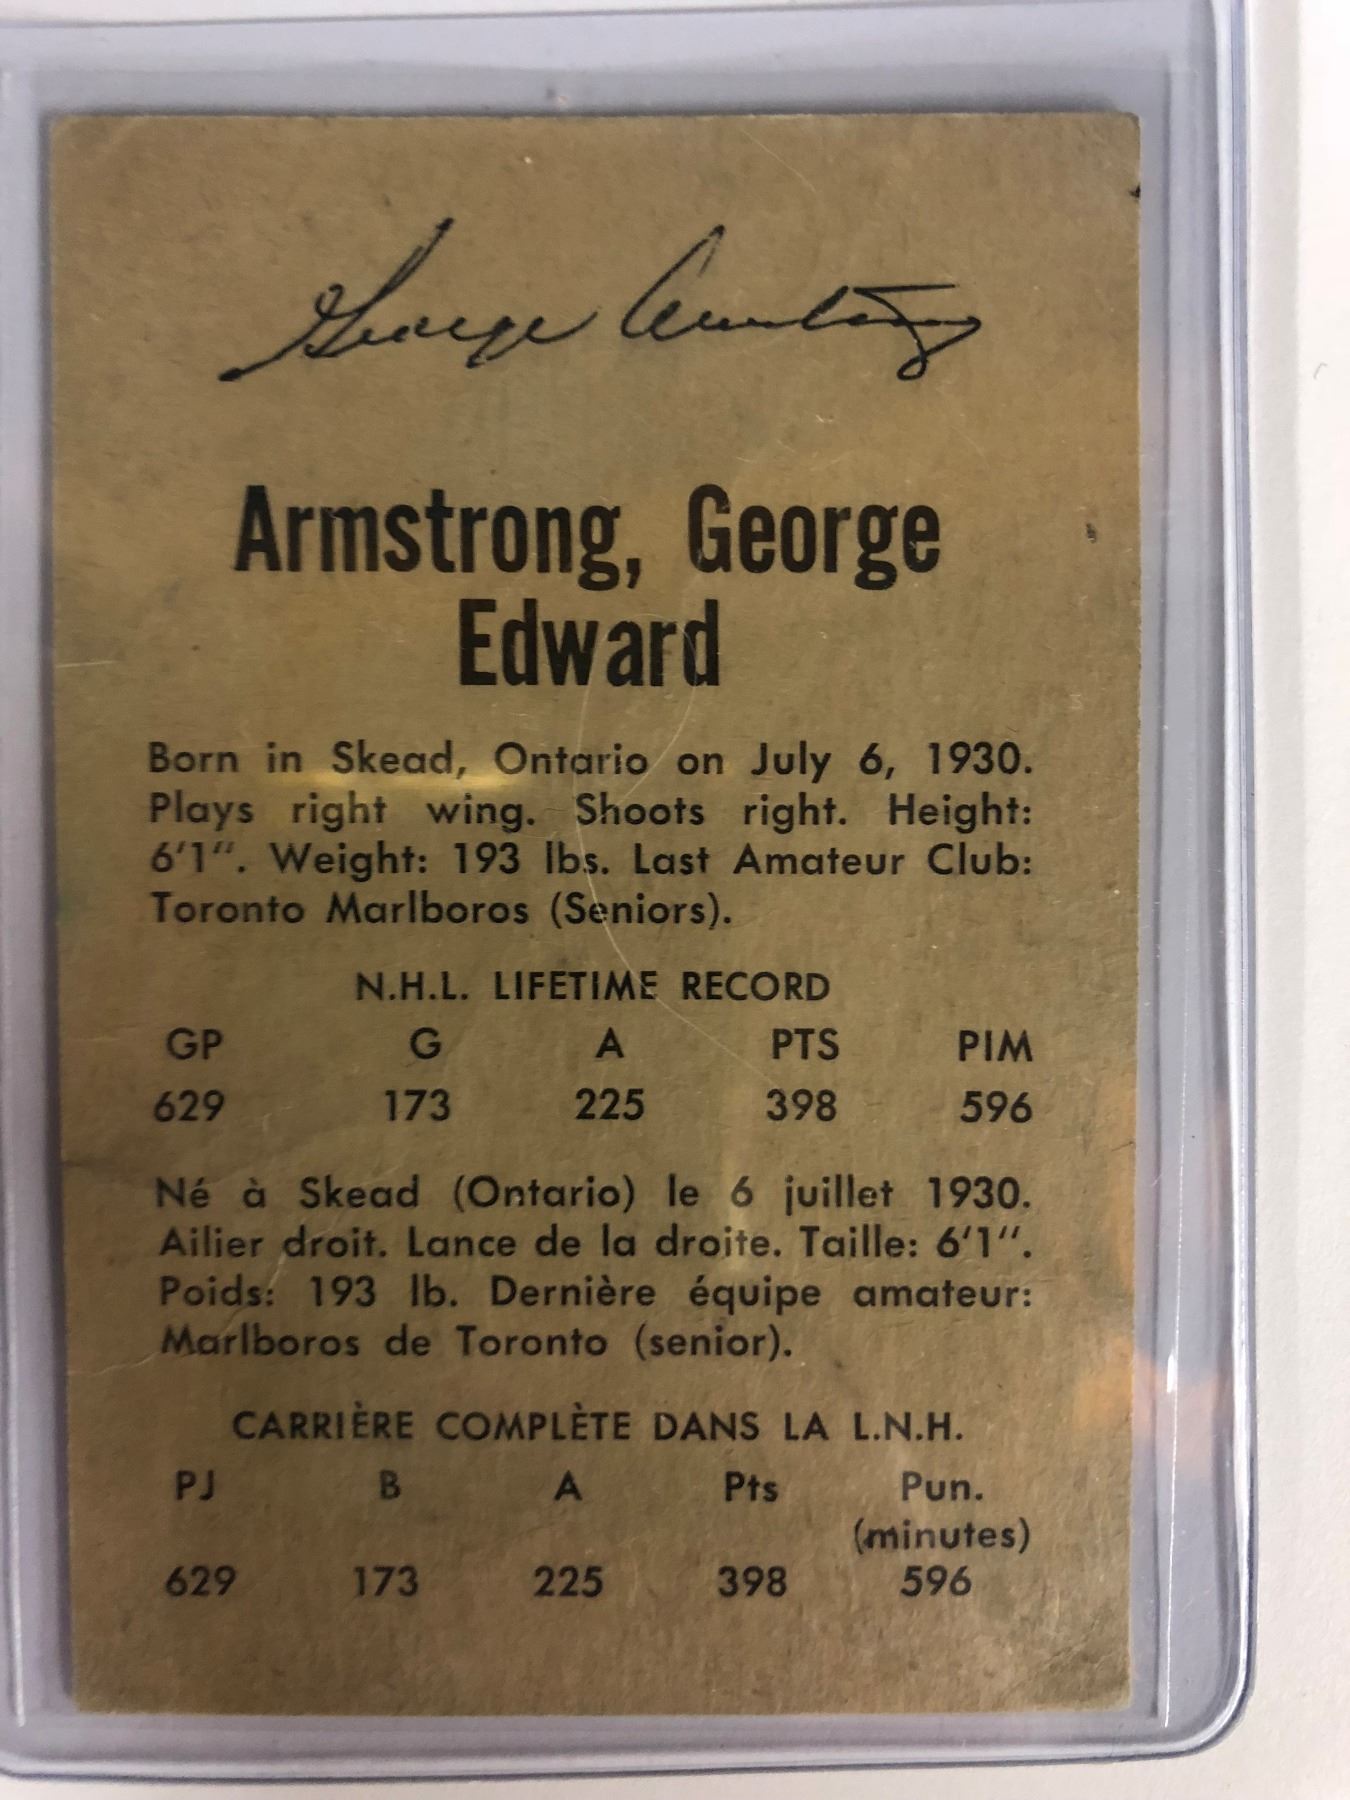 George Armstrong
Armstrong, George
Edward
Born in Skead, Ontario on July 6, 1930.
Plays right wing. Shoots right. Height:
6'1". Weight: 193 lbs. Last Amateur Club:
Toronto Marlboros (Seniors).
N.H.L. LIFETIME RECORD
GP G A PTS PIM
629 173 225 398 596
Né à Skead (Ontario) le 6 juillet 1930.
Ailier droit. Lance de la droite. Taille: 6'1".
Poids: 193 lb. Dernière équipe amateur:
Marlboros de Toronto (senior).
CARRIÈRE COMPLÈTE DANS LA L.N.H.
PJ B A Pts Pun.
(minutes)
629 173 225 398 596